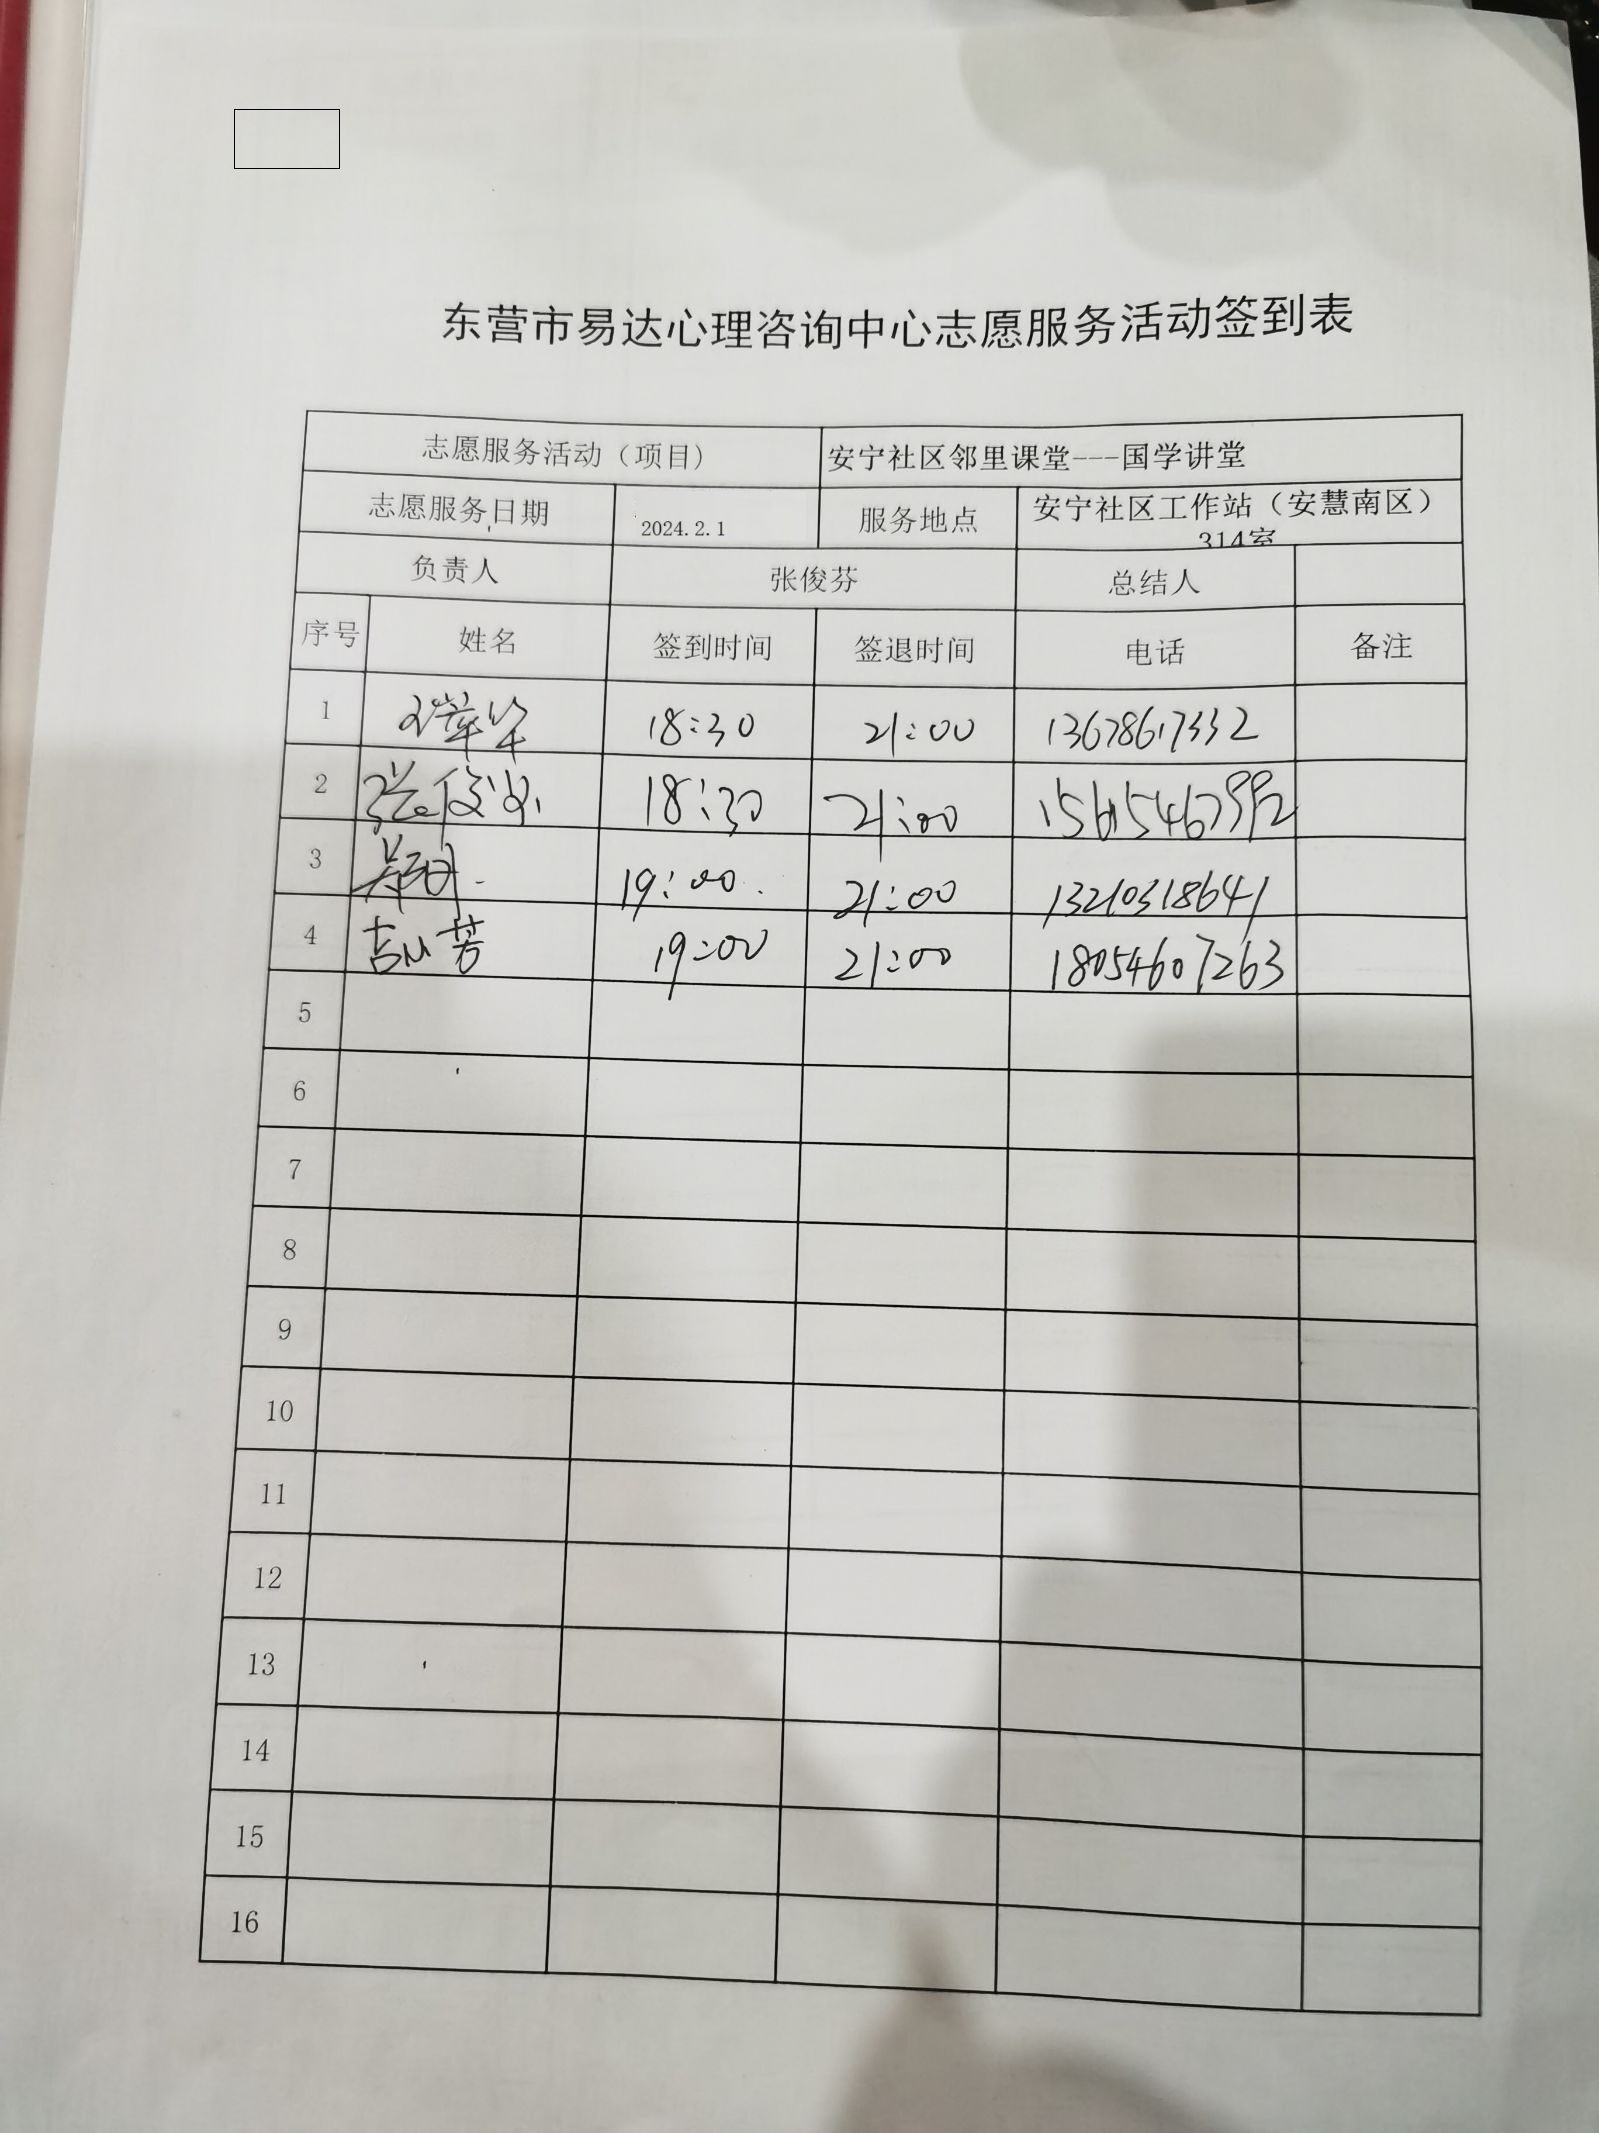 东营市易达心理咨询中心志愿服务活动签到表
志愿服务活动（项目） 安宁社区邻里课堂---国学讲堂
志愿服务日期 2024.2.1 服务地点 安宁社区工作站（安慧南区）
314室
负责人 张俊芬 总结人
序号 姓名 签到时间 签退时间 电话 备注
1 18:30 21:00 13678617332
2 张俊芬 18:30 21:00 15615467992
3 19:00 21:00 13210318641
4 19:00 21:00 18054607263
5
6
7
8
9
10
11
12
13
14
15
16